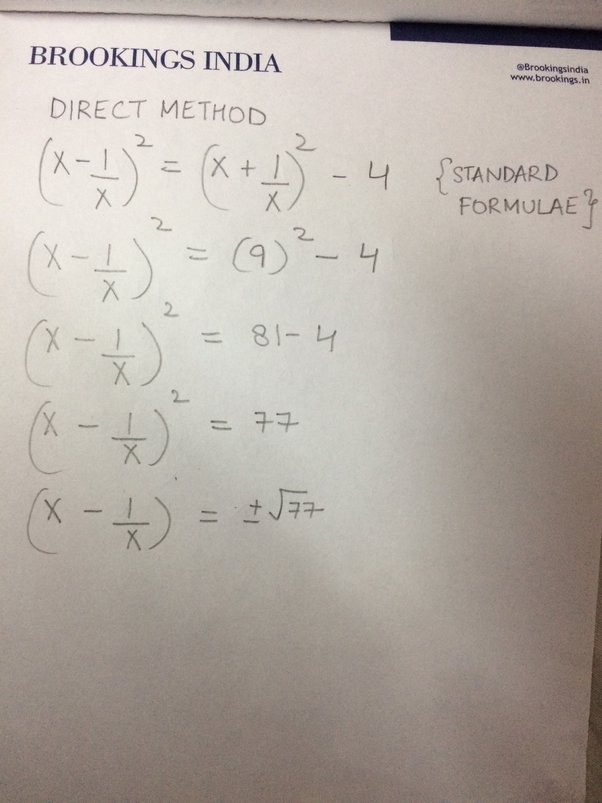 BROOKINGS INDIA
@Brookingsindia
www.brookings.in
DIRECT METHOD
(x - 1/x)² = (x + 1/x)² - 4 {STANDARD FORMULAE}
(x - 1/x)² = (9)² - 4
(x - 1/x)² = 81 - 4
(x - 1/x)² = 77
(x - 1/x) = ±√77